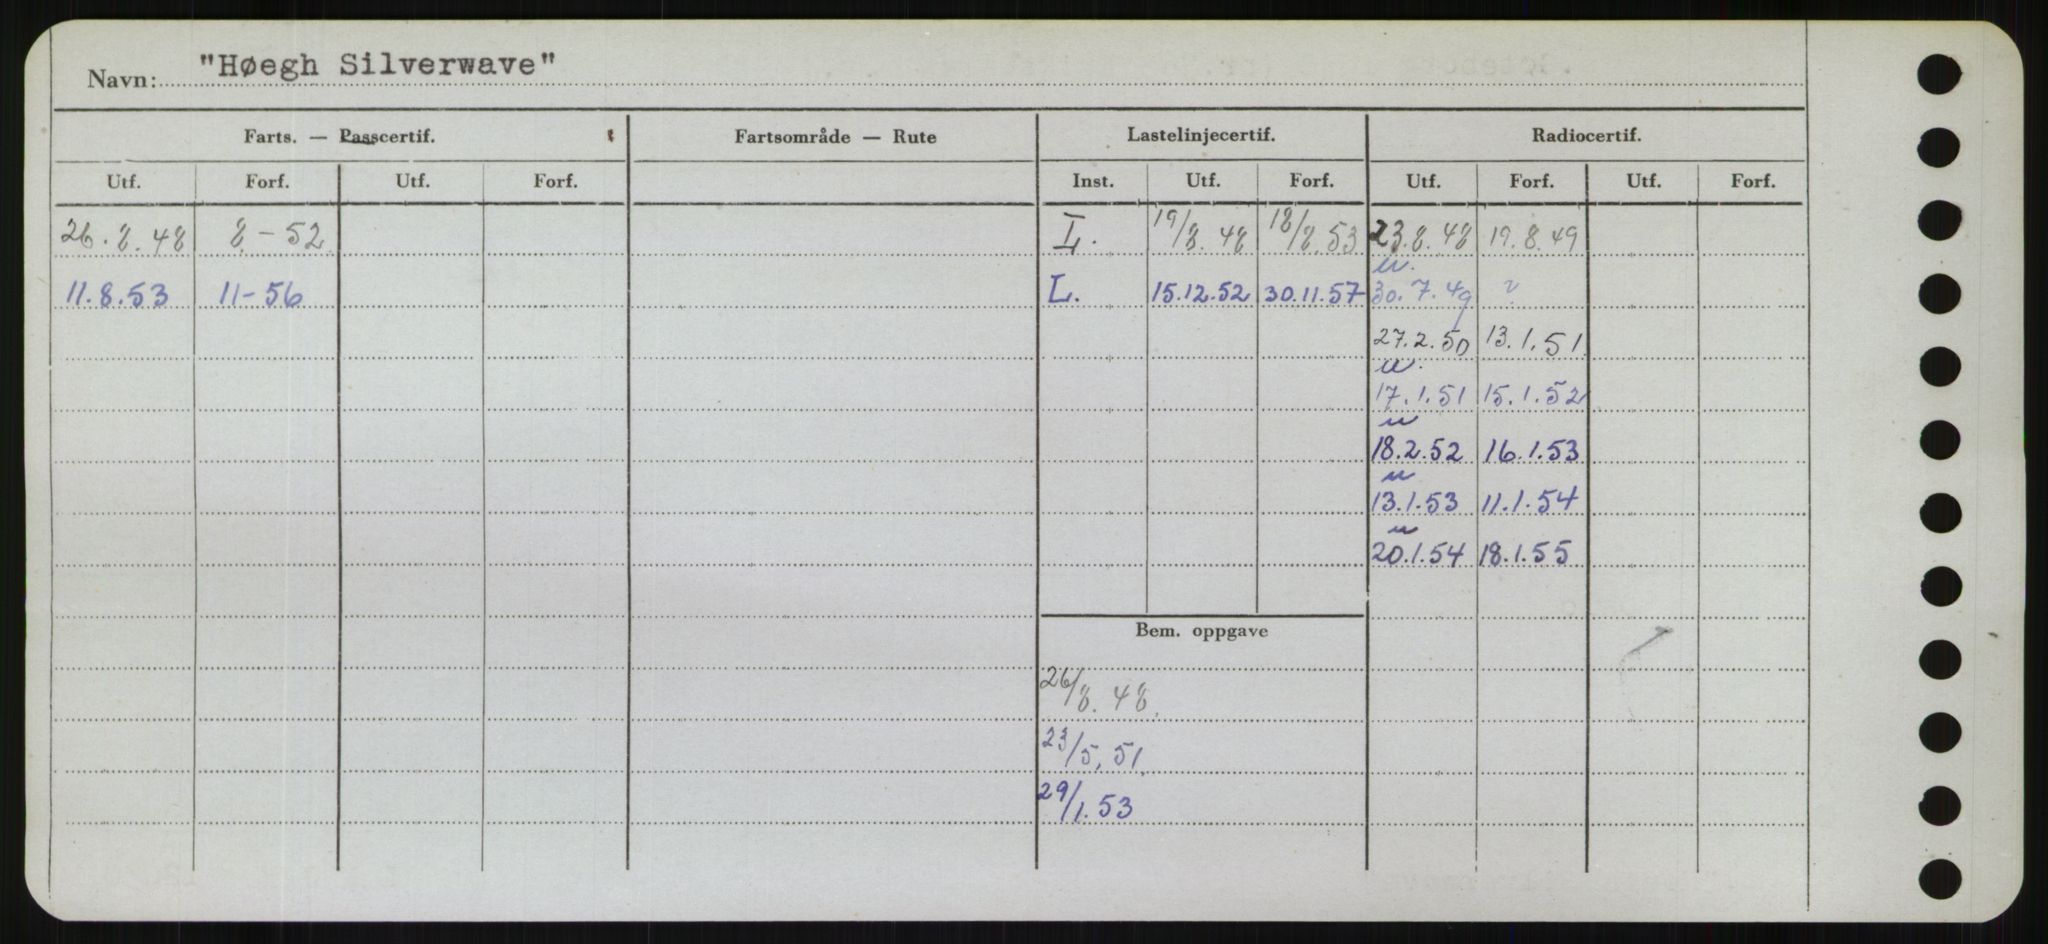 Navn: "Høegh Silverwave"
Farts. — Passcertif. Fartsområde — Rute Lastelinjecertif. Radiocertif.
Utf. Forf. Utf. Forf. Inst. Utf. Forf. Utf. Forf. Utf. Forf.
26.8.48 8-52 L. 19/8.48 18/8.53 23.8.48 19.8.49
u.
11.8.53 11-56 L. 15.12.52 30.11.57 30.7.49 ?
27.2.50 13.1.51
u.
17.1.51 15.1.52
u
18.2.52 16.1.53
u
13.1.53 11.1.54
u
20.1.54 18.1.55
Bem. oppgave
26/8.48.
23/5.51
29/1.53